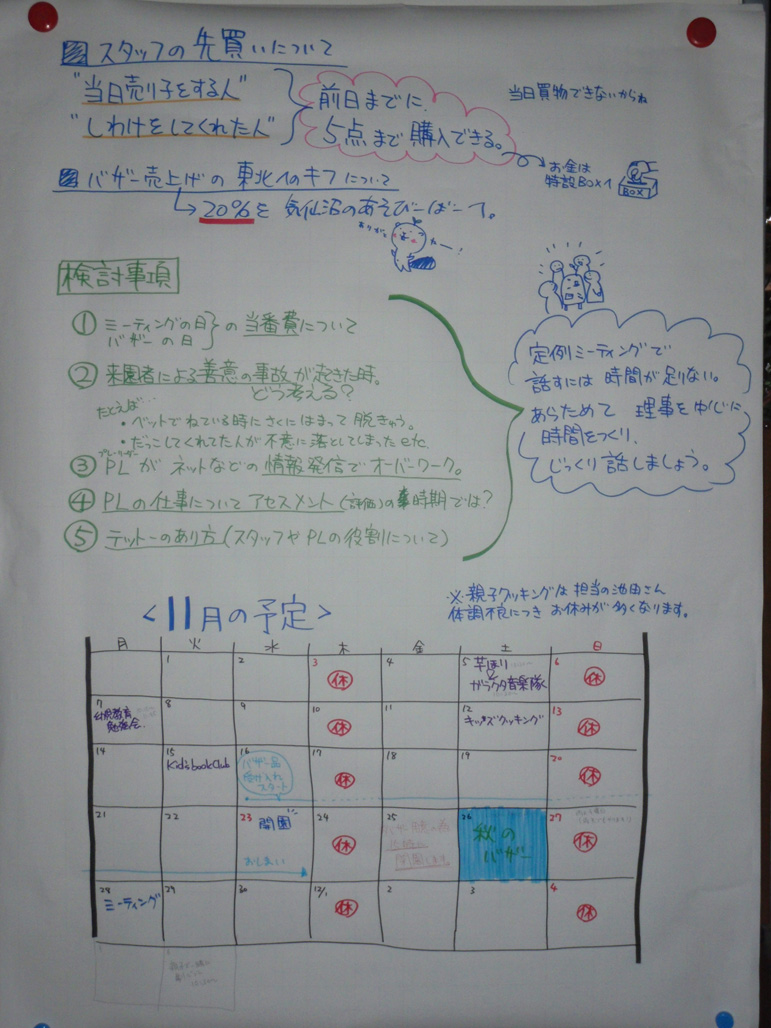 スタッフの先買いについて
"当日売り子をする人"
"しわけをしてくれた人"
前日までに、
5点まで購入できる。
当日買物できないからね
お金は
特設BOXへ
BOX
バザー売上げの東北へのキフについて
20%を 気仙沼のあそびーばーへ。
検討事項
① ミーティングの日
バザーの日
の当番費について
② 来園者による善意の事故が起きた時。
どう考える?
たとえば…
・ベットでねている時にさくにはまって脱きゅう。
・だっこしてくれてた人が不意に落としてしまったetc.
プレーリーダー
③ PLがネットなどの情報発信でオーバーワーク。
④ PLの仕事についてアセスメント(評価)の時期では?
⑤ テットーのあり方(スタッフやPLの役割について)
定例ミーティングで
話すには時間が足りない。
あらためて 理事を中心に
時間をつくり、
じっくり話しましょう。
※親子クッキングは担当の池田さん
体調不良につきお休みが多くなります。
<11月の予定>
月 火 水 木 金 土 日
1 2 3 休 4 5 芋ほり ガラクタ音楽隊 6 休
7 幼児教育勉強会 8 9 10 休 11 12 キッズクッキング 13 休
14 15 Kid's book Club 16 バザー品受け入れスタート 17 休 18 19 20 休
21 22 23 開園 おしまい 24 休 25 26 秋のバザー 27 休
28 ミーティング 29 30 12/1 休 2 3 4 休